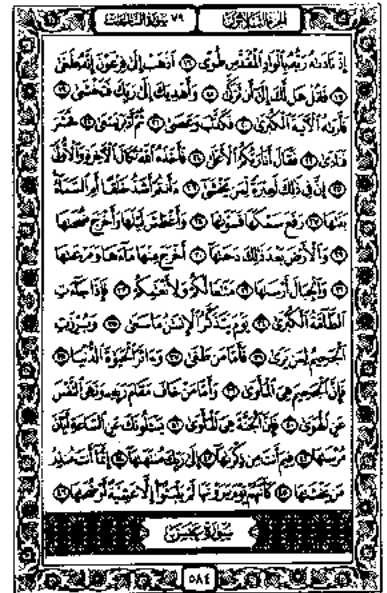 الجزء الثلاثون
٧٩ سورة النازعات
إِذْ نَادَىٰهُ رَبُّهُۥ بِٱلْوَادِ ٱلْمُقَدَّسِ طُوًى ١٦ ٱذْهَبْ إِلَىٰ فِرْعَوْنَ إِنَّهُۥ طَغَىٰ
١٧ فَقُلْ هَل لَّكَ إِلَىٰٓ أَن تَزَكَّىٰ ١٨ وَأَهْدِيَكَ إِلَىٰ رَبِّكَ فَتَخْشَىٰ ١٩
فَأَرَىٰهُ ٱلْـَٔايَةَ ٱلْكُبْرَىٰ ٢٠ فَكَذَّبَ وَعَصَىٰ ٢١ ثُمَّ أَدْبَرَ يَسْعَىٰ ٢٢ فَحَشَرَ
فَنَادَىٰ ٢٣ فَقَالَ أَنَا۠ رَبُّكُمُ ٱلْأَعْلَىٰ ٢٤ فَأَخَذَهُ ٱللَّهُ نَكَالَ ٱلْـَٔاخِرَةِ وَٱلْأُولَىٰٓ
٢٥ إِنَّ فِى ذَٰلِكَ لَعِبْرَةً لِّمَن يَخْشَىٰٓ ٢٦ ءَأَنتُمْ أَشَدُّ خَلْقًا أَمِ ٱلسَّمَآءُ
بَنَىٰهَا ٢٧ رَفَعَ سَمْكَهَا فَسَوَّىٰهَا ٢٨ وَأَغْطَشَ لَيْلَهَا وَأَخْرَجَ ضُحَىٰهَا
٢٩ وَٱلْأَرْضَ بَعْدَ ذَٰلِكَ دَحَىٰهَآ ٣٠ أَخْرَجَ مِنْهَا مَآءَهَا وَمَرْعَىٰهَا
٣١ وَٱلْجِبَالَ أَرْسَىٰهَا ٣٢ مَتَٰعًا لَّكُمْ وَلِأَنْعَٰمِكُمْ ٣٣ فَإِذَا جَآءَتِ
ٱلطَّآمَّةُ ٱلْكُبْرَىٰ ٣٤ يَوْمَ يَتَذَكَّرُ ٱلْإِنسَٰنُ مَا سَعَىٰ ٣٥ وَبُرِّزَتِ
ٱلْجَحِيمُ لِمَن يَرَىٰ ٣٦ فَأَمَّا مَن طَغَىٰ ٣٧ وَءَاثَرَ ٱلْحَيَوٰةَ ٱلدُّنْيَا ٣٨
فَإِنَّ ٱلْجَحِيمَ هِىَ ٱلْمَأْوَىٰ ٣٩ وَأَمَّا مَنْ خَافَ مَقَامَ رَبِّهِۦ وَنَهَى ٱلنَّفْسَ
عَنِ ٱلْهَوَىٰ ٤٠ فَإِنَّ ٱلْجَنَّةَ هِىَ ٱلْمَأْوَىٰ ٤١ يَسْـَٔلُونَكَ عَنِ ٱلسَّاعَةِ أَيَّانَ
مُرْسَىٰهَا ٤٢ فِيمَ أَنتَ مِن ذِكْرَىٰهَآ ٤٣ إِلَىٰ رَبِّكَ مُنتَهَىٰهَآ ٤٤ إِنَّمَآ أَنتَ مُنذِرُ
مَن يَخْشَىٰهَا ٤٥ كَأَنَّهُمْ يَوْمَ يَرَوْنَهَا لَمْ يَلْبَثُوٓا۟ إِلَّا عَشِيَّةً أَوْ ضُحَىٰهَا ٤٦
سورة عبس
٥٨٤